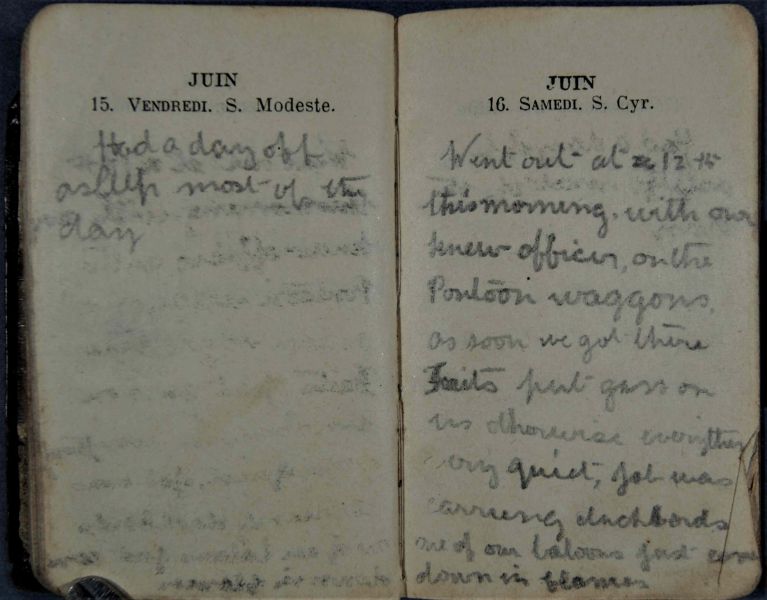 JUIN
15. VENDREDI. S. Modeste.
Had a day off
asleep most of the
day
JUIN
16. SAMEDI. S. Cyr.
Went out at 12
this morning. with our
knew officer, on the
Pontoon waggons,
as soon we got there
Fritz put gass on
us otherwise everything
very quiet, Job was
carrieng duckbords
one of our baloons just come
down in flames